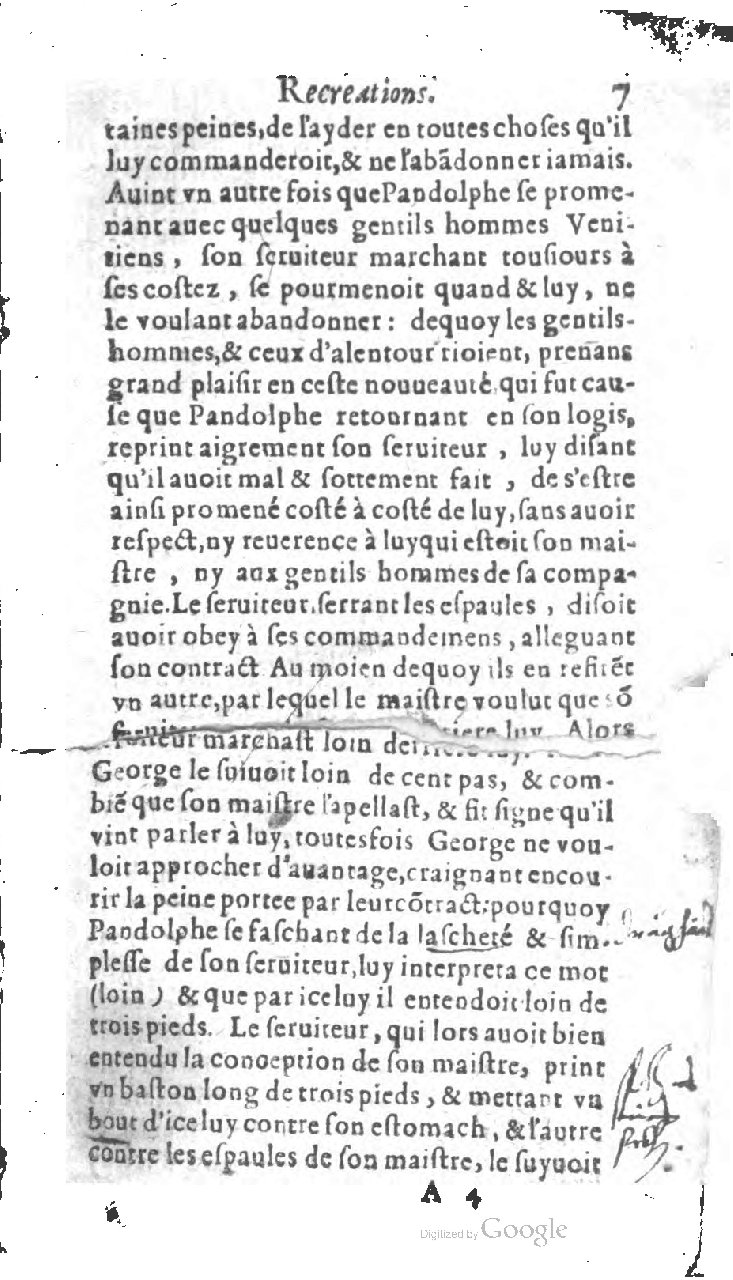 Recréations. 7
taines peines, de l'ayder en toutes choſes qu'il
luy commanderoit, & ne l'abādonner iamais.
Auint vn autre fois que Pandolphe ſe prome-
nant auec quelques gentils hommes Veni-
tiens, ſon ſeruiteur marchant touſiours à
ſes coſtez, ſe pourmenoit quand & luy, ne
le voulant abandonner: dequoy les gentils-
hommes, & ceux d'alentour rioient, prenans
grand plaiſir en ceſte nouueauté, qui fut cau-
ſe que Pandolphe retournant en ſon logis,
reprint aigrement ſon ſeruiteur, luy diſant
qu'il auoit mal & ſottement fait, de s'eſtre
ainſi promené coſté à coſté de luy, ſans auoir
reſpect, ny reuerence à luy qui eſtoit ſon mai-
ſtre, ny aux gentils hommes de ſa compa-
gnie. Le ſeruiteur ſerrant les eſpaules, diſoit
auoir obey à ſes commandemens, alleguant
ſon contract Au moien dequoy ils en refirēt
vn autre, par lequel le maiſtre voulut que sō
ſeruiteur marchaſt loin derriere luy. Alors
George le ſuiuoit loin de cent pas, & com-
biē que ſon maiſtre l'apellaſt, & fit ſigne qu'il
vint parler à luy, toutesfois George ne vou-
loit approcher d'auantage, craignant encou-
rir la peine portee par leur cōtract: pourquoy
Pandolphe ſe faſchant de la laſcheté & ſim-
pleſſe de ſon ſeruiteur, luy interpreta ce mot
(loin) & que par iceluy il entendoit loin de
trois pieds. Le ſeruiteur, qui lors auoit bien
entendu la conception de ſon maiſtre, print
vn baſton long de trois pieds, & mettant vn
bout d'iceluy contre ſon eſtomach, & l'autre
contre les eſpaules de ſon maiſtre, le ſuyuoit
A 4
Digitized by Google